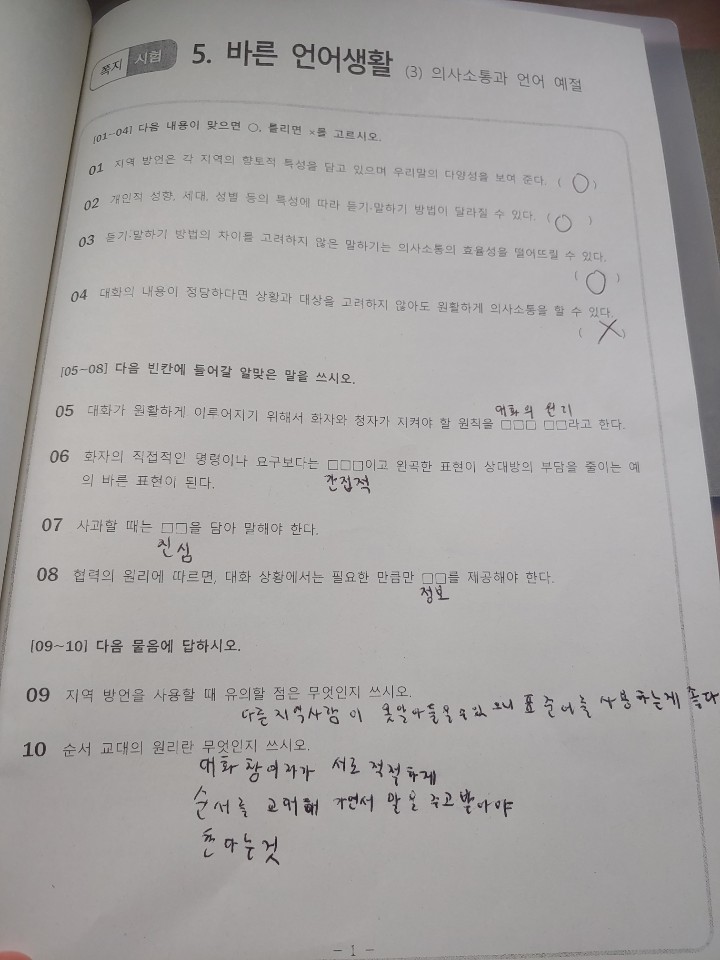 쪽지 시험 5. 바른 언어생활 (3) 의사소통과 언어 예절
[01~04] 다음 내용이 맞으면 ○, 틀리면 ×를 고르시오.
01 지역 방언은 각 지역의 향토적 특성을 담고 있으며 우리말의 다양성을 보여 준다. ( ○ )
02 개인적 성향, 세대, 성별 등의 특성에 따라 듣기·말하기 방법이 달라질 수 있다. ( ○ )
03 듣기·말하기 방법의 차이를 고려하지 않은 말하기는 의사소통의 효율성을 떨어뜨릴 수 있다.
( ○ )
04 대화의 내용이 정당하다면 상황과 대상을 고려하지 않아도 원활하게 의사소통을 할 수 있다.
( × )
[05~08] 다음 빈칸에 들어갈 알맞은 말을 쓰시오.
대화의 원리
05 대화가 원활하게 이루어지기 위해서 화자와 청자가 지켜야 할 원칙을 □□□ □□라고 한다.
06 화자의 직접적인 명령이나 요구보다는 □□□이고 완곡한 표현이 상대방의 부담을 줄이는 예
의 바른 표현이 된다.
간접적
07 사과할 때는 □□을 담아 말해야 한다.
진심
08 협력의 원리에 따르면, 대화 상황에서는 필요한 만큼만 □□를 제공해야 한다.
정보
[09~10] 다음 물음에 답하시오.
09 지역 방언을 사용할 때 유의할 점은 무엇인지 쓰시오.
다른 지역사람이 못알아들을수있으니 표준어를 사용하는게 좋다
10 순서 교대의 원리란 무엇인지 쓰시오.
대화 참여자가 서로 적절하게
순서를 교대해 가면서 말을 주고 받아야
한다는것
- 1 -